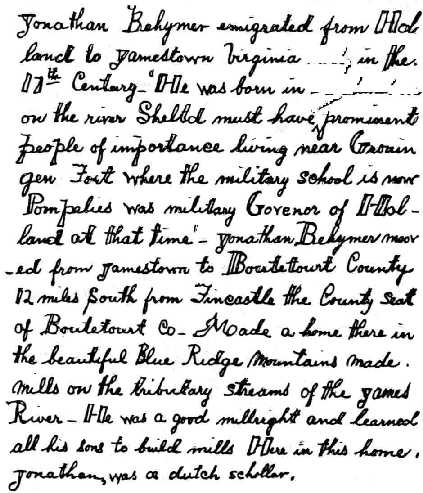 Jonathan Behymer emigrated from Hol
land to Jamestown Virginia in the.
17th Century - "He was born in
on the river Sheltd must have prominent
people of importance living near Gronin
gen Fort where the military school is now
Pompelies was military Govenor of Hol-
land at that time" - Jonathan Behymer moov
-ed from Jamestown to Bourtettourt County
12 miles South from Fincastle the County seat
of Boutetourt Co - Made a home there in
the beautiful Blue Ridge Mountains made.
mills on the tributary streams of the James
River - He was a good millright and learned
all his sons to build mills Here in this home.
Jonathan, was a dutch schollar.